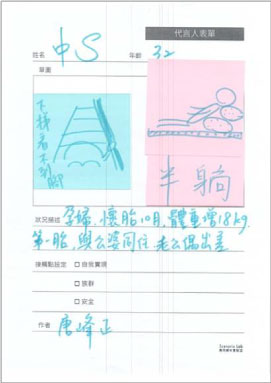 代言人表單
姓名 中S 年齡 32
草圖
下梯看不到腳
半躺
狀況描述 孕婦，懷胎10月，體重增18kg，
第一胎，與公婆同住，老公偶出差
接觸點設定 □ 自我實現
□ 族群
□ 安全
作者 唐峰正
Scenario Lab